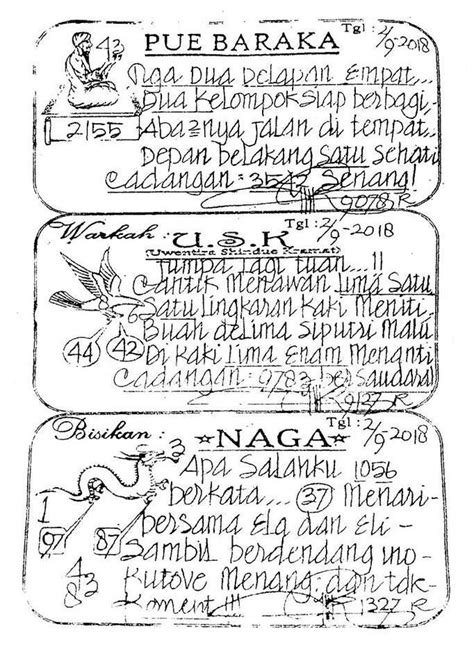 PUE BARAKA Tgl : 2/9-2018
43
Tiga Dua Delapan Empat...
Dua Kelompok siap berbagi,-
2155
Aba2nya jalan di tempat..
Depan belakang satu sehati
Cadangan = 3542 Senang!
9078 R
Warkah : U.S.K Tgl : 2/9-2018
(Uwentira Shindue Kramat)
Tumpa lagi tuan...!!
Cantik Menawan lima Satu
Satu lingkaran kaki Meniti,-
6
Buah delima siputri Malu
44 42
Di kaki lima enam Menanti
Cadangan : 9783 ber Saudara!
9127 R
Bisikan : NAGA Tgl : 2/9-2018
3
Apa Salahku 1056
berkata... 37 Menari-
1
bersama Elg dan Eli -
97 87
Sambil berdendang ino-
43
8
Kutove Menang dan tdk-
Koment !!!
1327 R